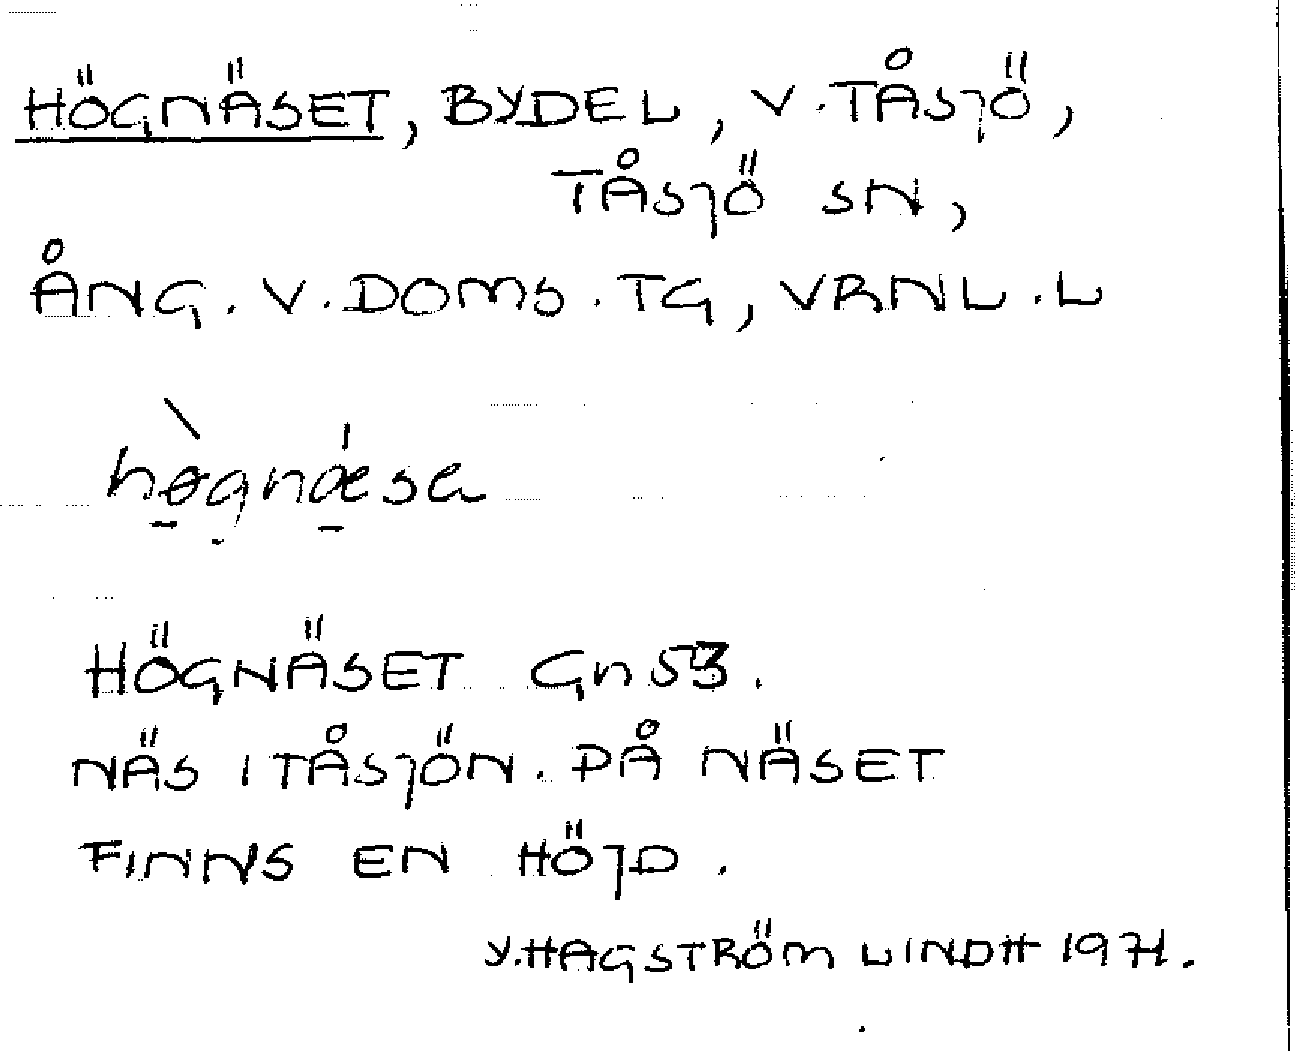 HÖGNÄSET, BYDEL, V. TÅSJÖ,
TÅSJÖ SN,
ÅNG. V. DOMS. TG, VRNL. L
hø̀gnǽsa
HÖGNÄSET Gn 53.
NÄS I TÅSJÖN. PÅ NÄSET
FINNS EN HÖJD.
Y. HAGSTRÖM LINDH 1971.